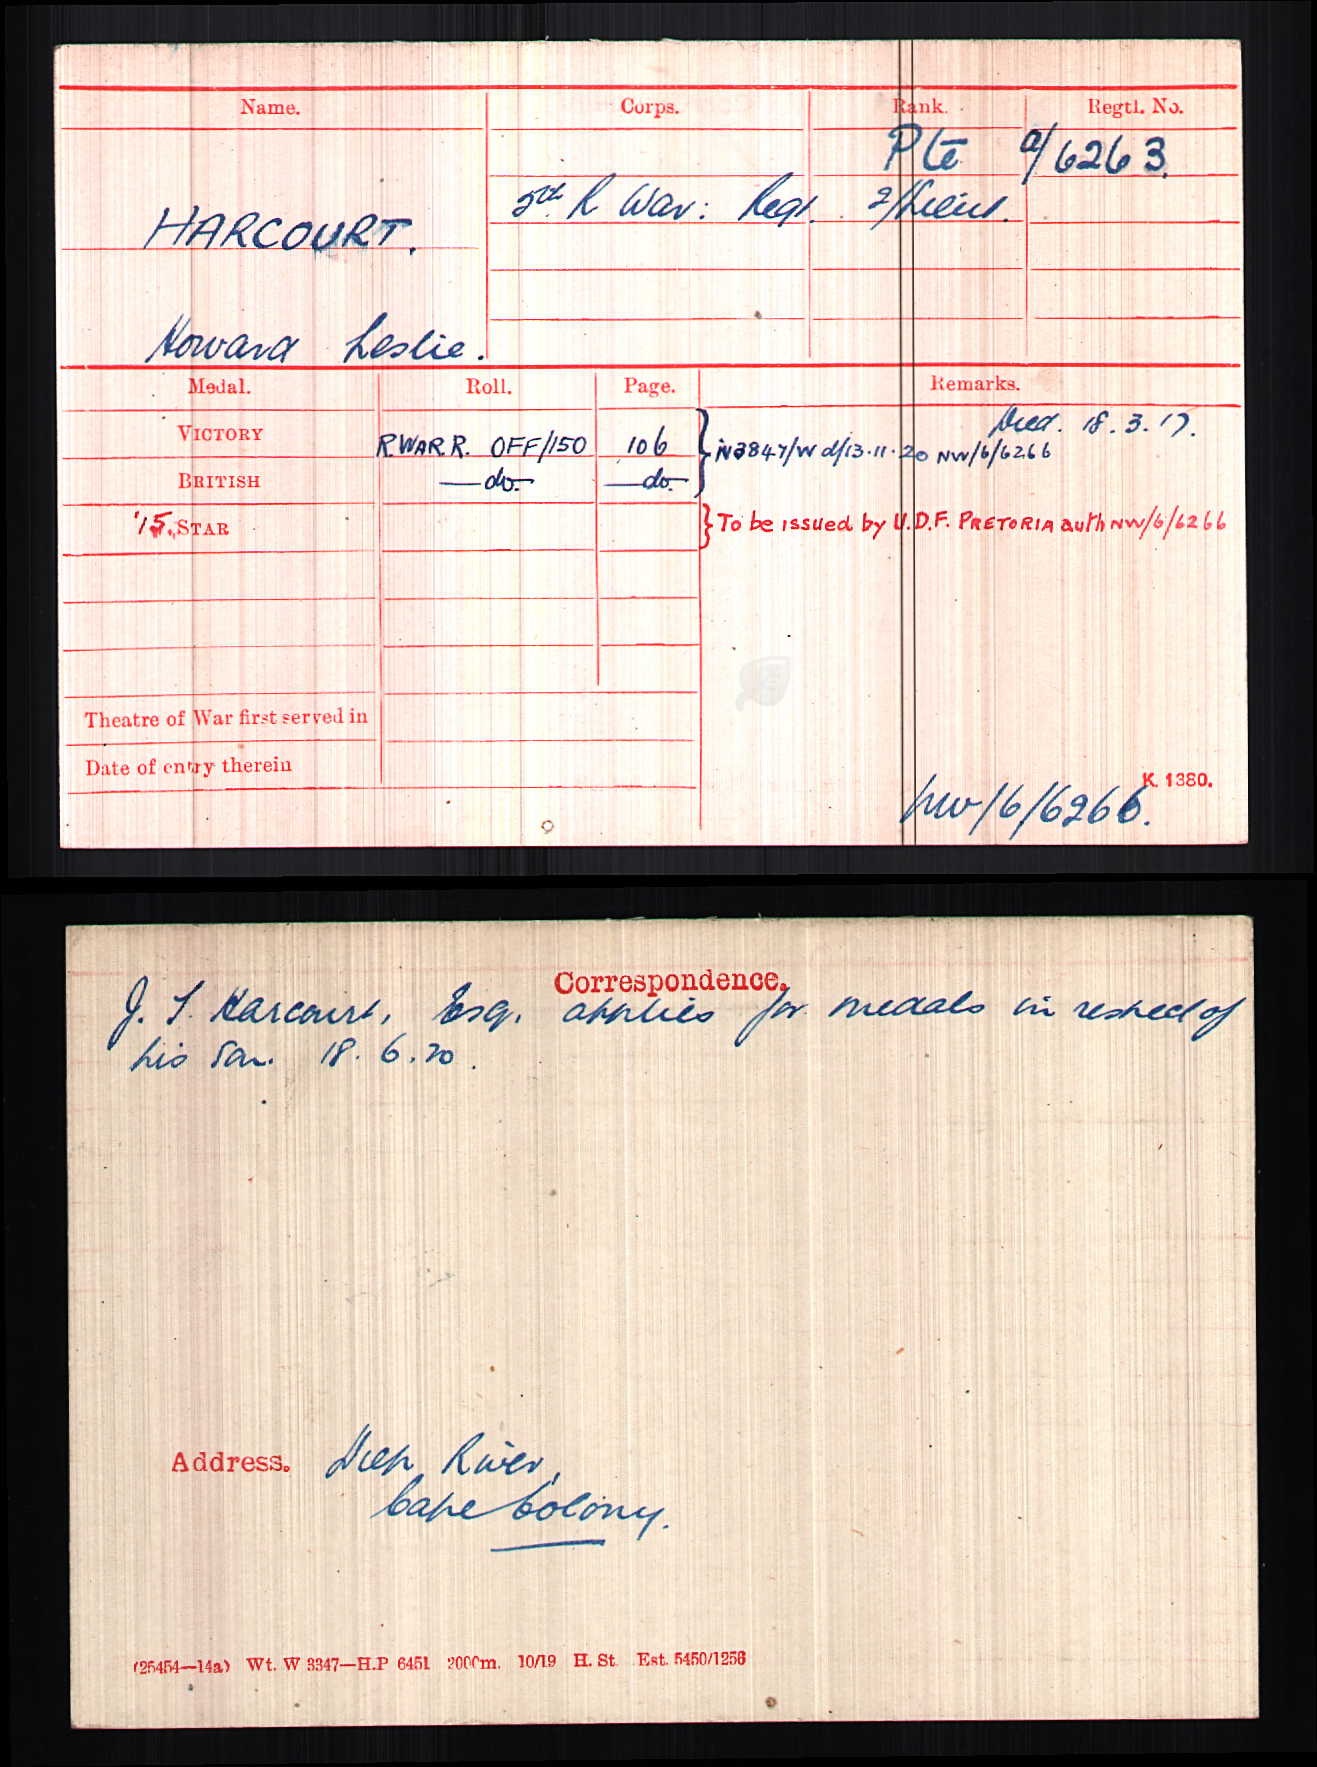 Name. Corps. Rank. Regtl. No.
Pte a/6263.
5th R War: Regt. 2/Lieut.
HARCOURT.
Howard Leslie.
Medal. Roll. Page. Remarks.
Died. 18.3.17.
VICTORY R.WAR.R. OFF/150 106
BRITISH —do.— —do.—
NW/6/6266
'15 STAR To be issued by U.D.F. PRETORIA auth NW/6/6266
Theatre of War first served in
Date of entry therein
K. 1380.
NW/6/6266.
Correspondence.
J. S. Harcourt, Esq. applies for medals in respect of
his son. 18.6.20.
Address. Diep River,
Cape Colony.
(25454—14a) Wt. W 3347—H.P 6451 2000m. 10/19 H. St. Est. 5450/1256